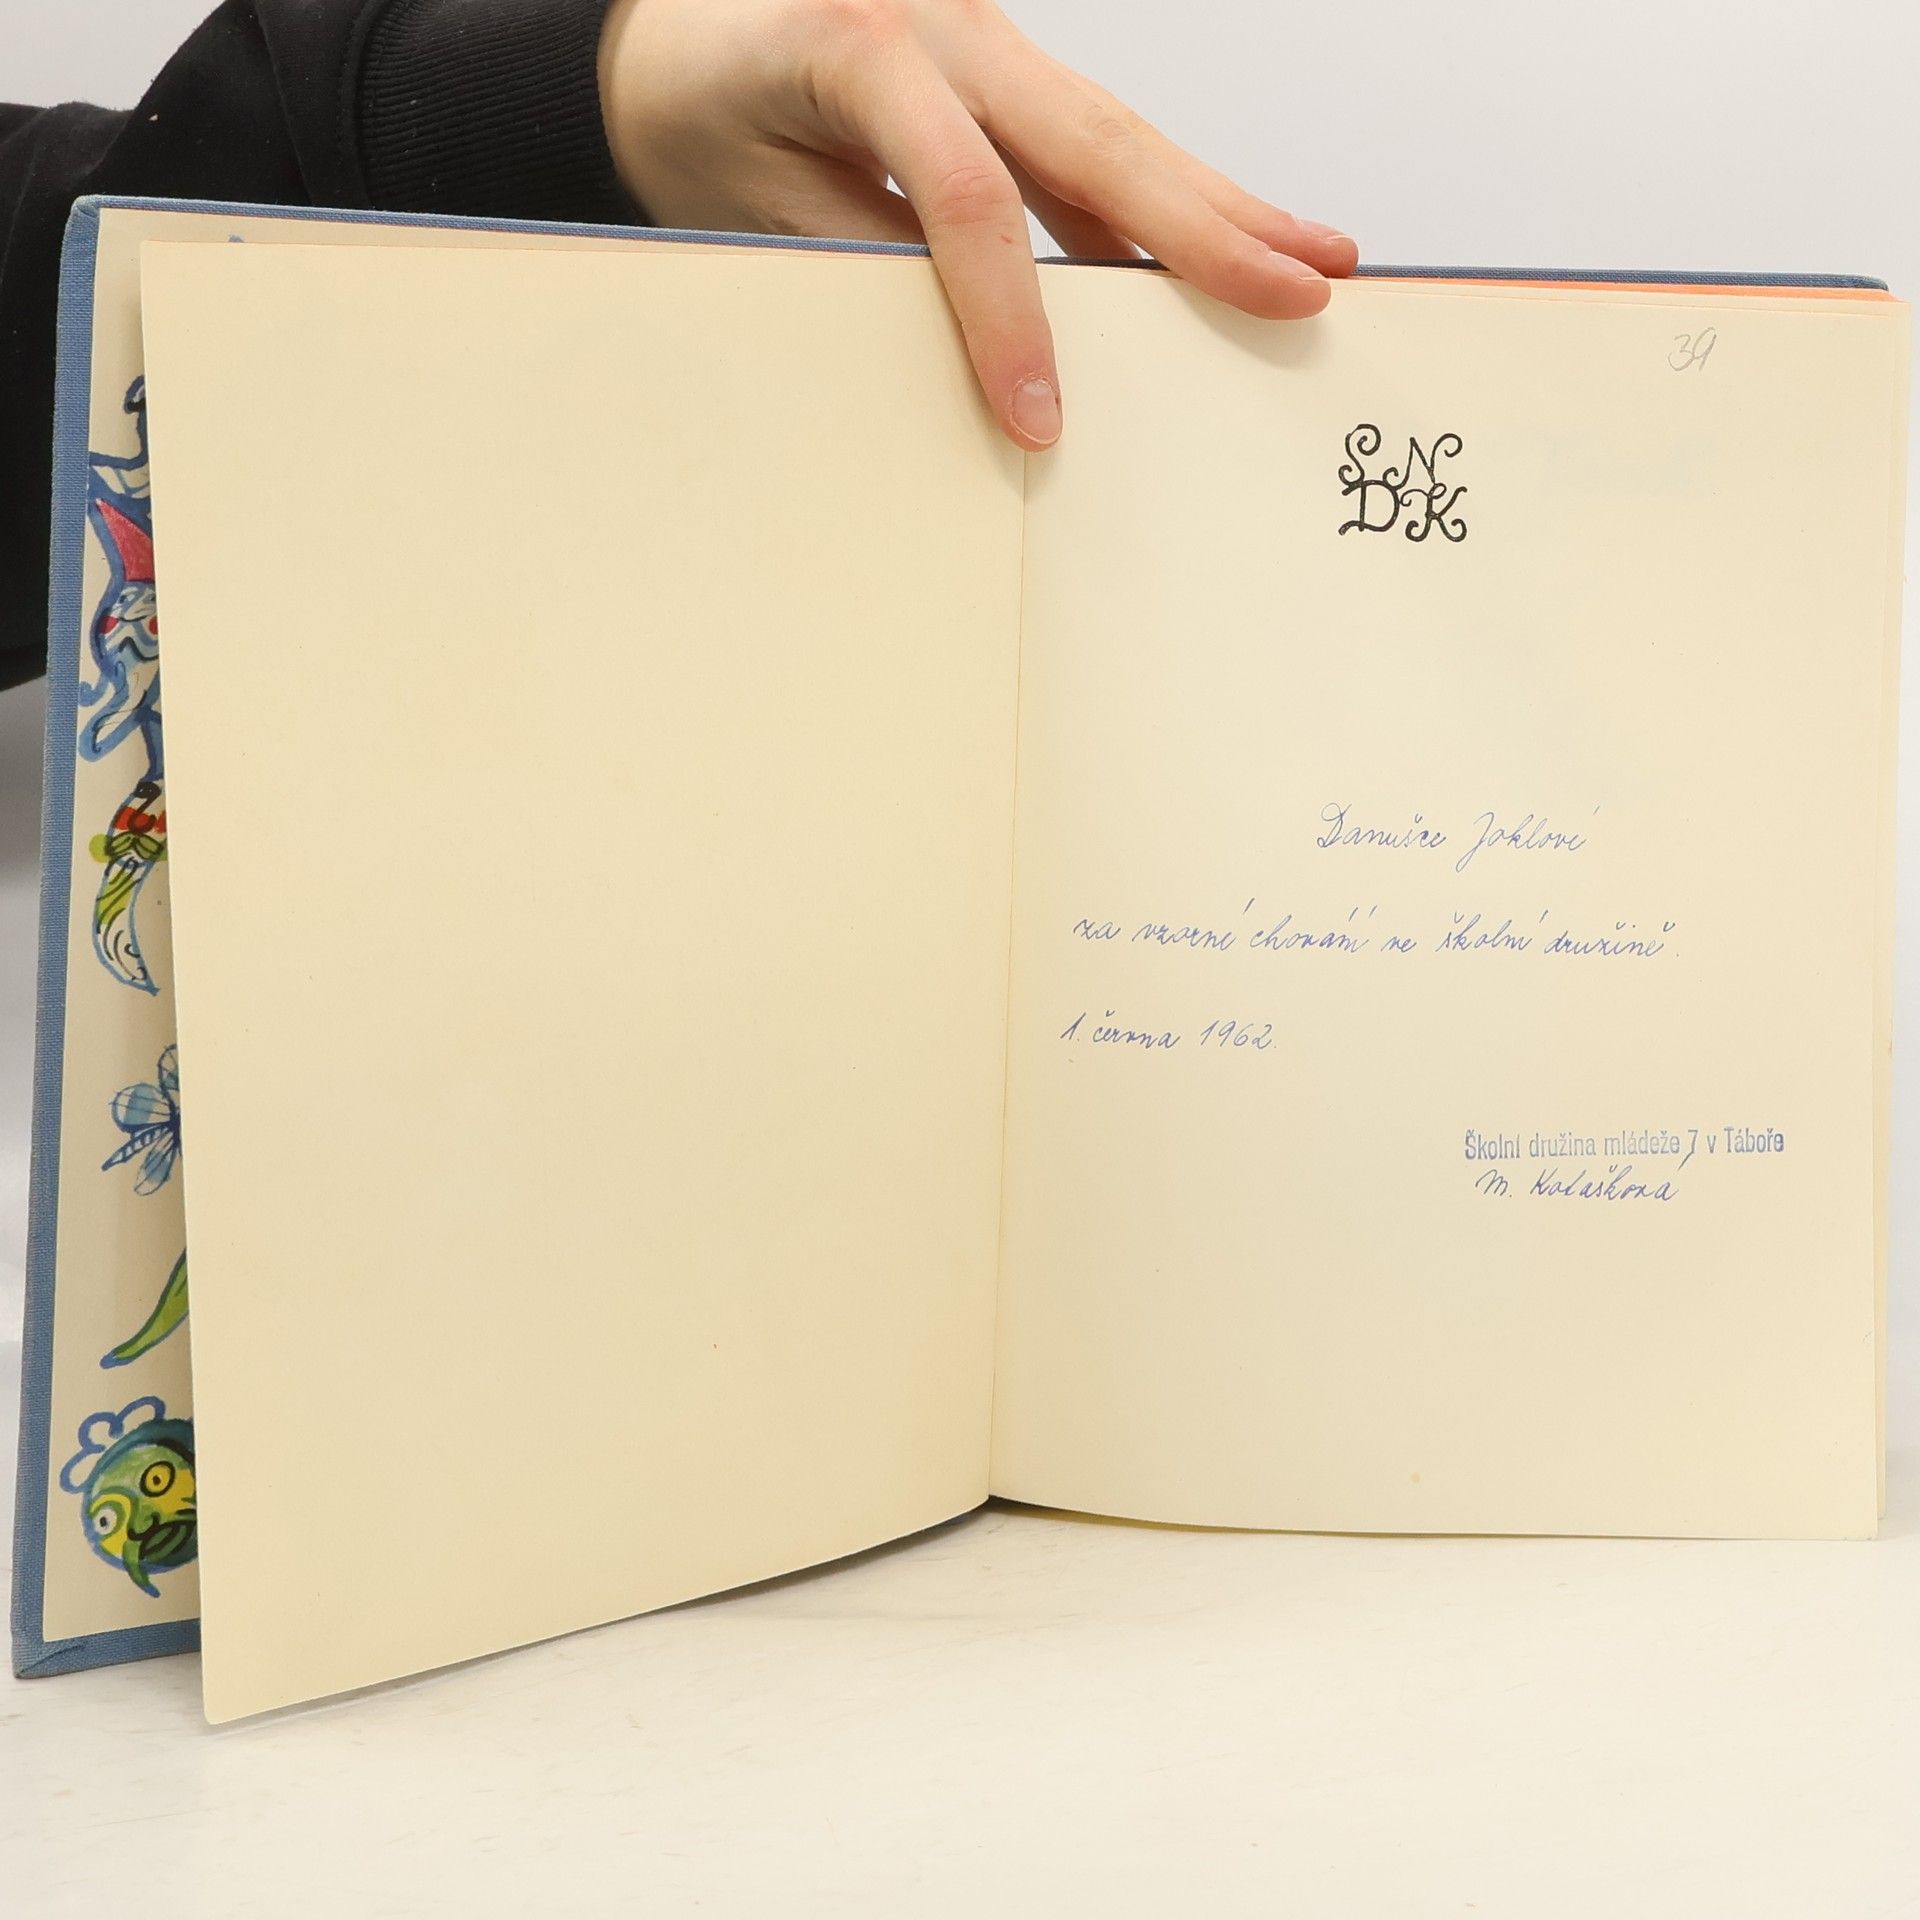 39
SN
DK
Danušce Joklové
za vzorné chování ve školní družině.
1. června 1962.
Školní družina mládeže 7 v Táboře
M. Kolašková